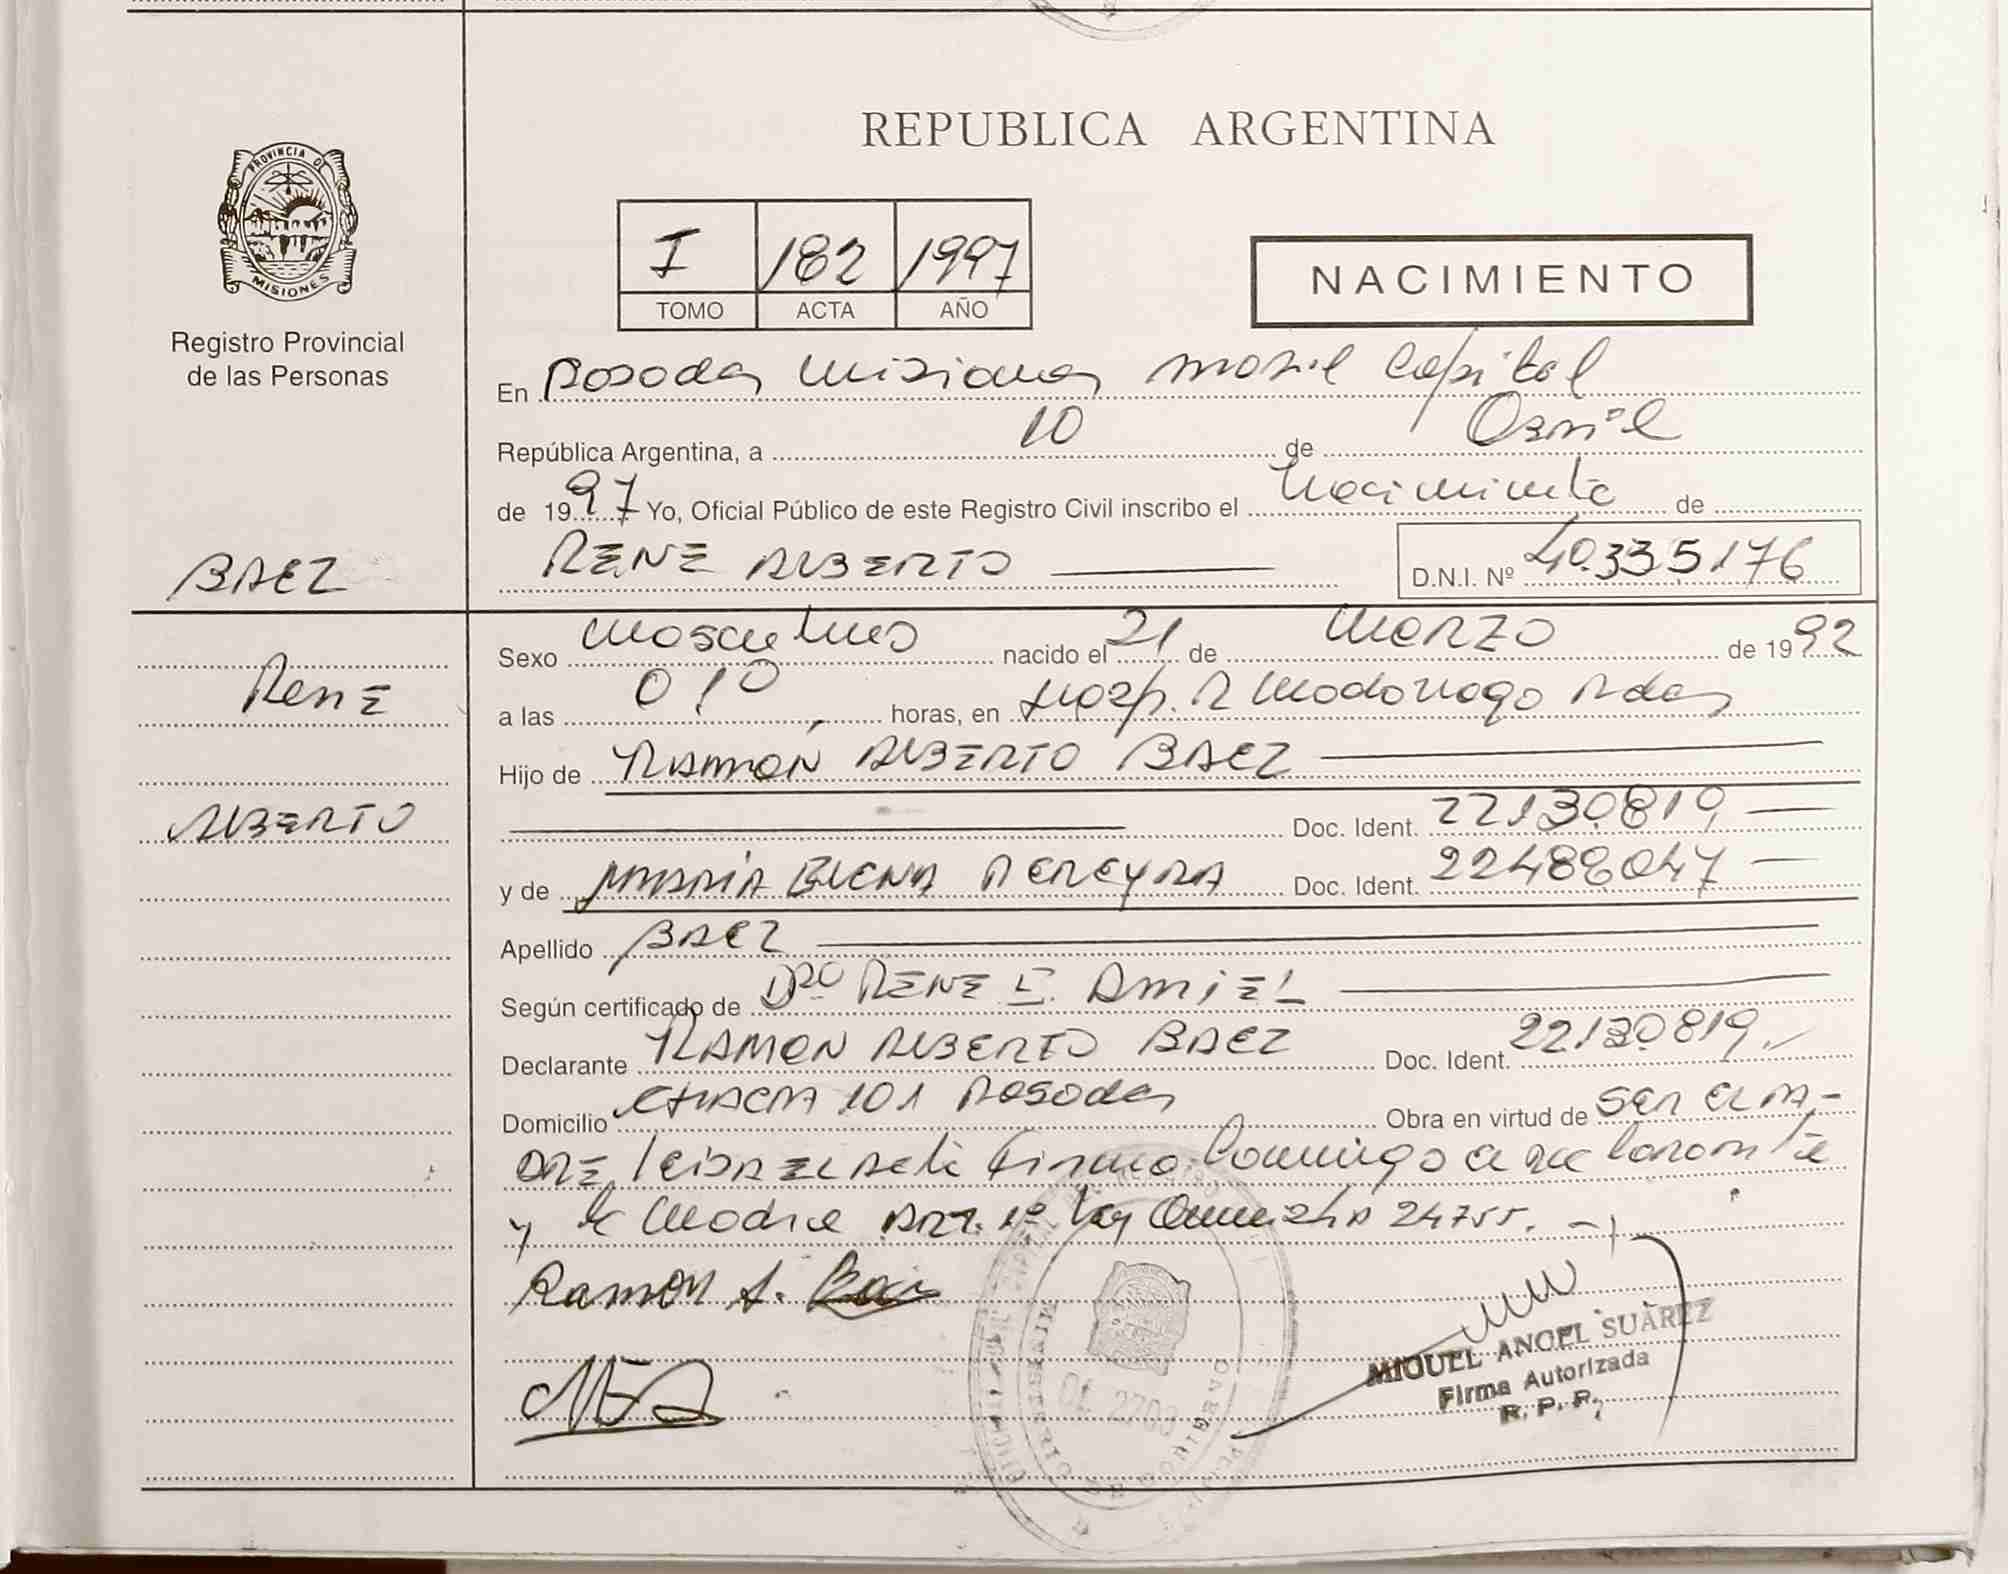 REPUBLICA ARGENTINA
PROVINCIA DE
MISIONES
Registro Provincial
de las Personas
I 182 1997
TOMO ACTA AÑO
NACIMIENTO
En Posadas Misiones Capital
República Argentina, a 10 de Abril
de 1997 Yo, Oficial Público de este Registro Civil inscribo el Nacimiento de
BAEZ
RENE ALBERTO
D.N.I. Nº 40.335.176
Sexo Masculino nacido el 21 de Marzo de 1992
Rene
a las 010 horas, en Hosp. R Madariaga Pdas
Hijo de RAMÓN ALBERTO BAEZ
ALBERTO
Doc. Ident. 22.130.819
y de MARÍA ELENA PEREYRA Doc. Ident. 22488047
Apellido BAEZ
Según certificado de Dro RENE E. AMIEL
Declarante RAMON ALBERTO BAEZ Doc. Ident. 22.130.819
Domicilio CHACRA 101 Posadas Obra en virtud de SER EL PA-
DRE leída el acta firma conmigo el declarante
y la Madre ART. 1º ley 24755.
Ramon A. Baez
MIGUEL ANGEL SUÁREZ
Firma Autorizada
R. P. P.
MINISTERIO DE GOBIERNO